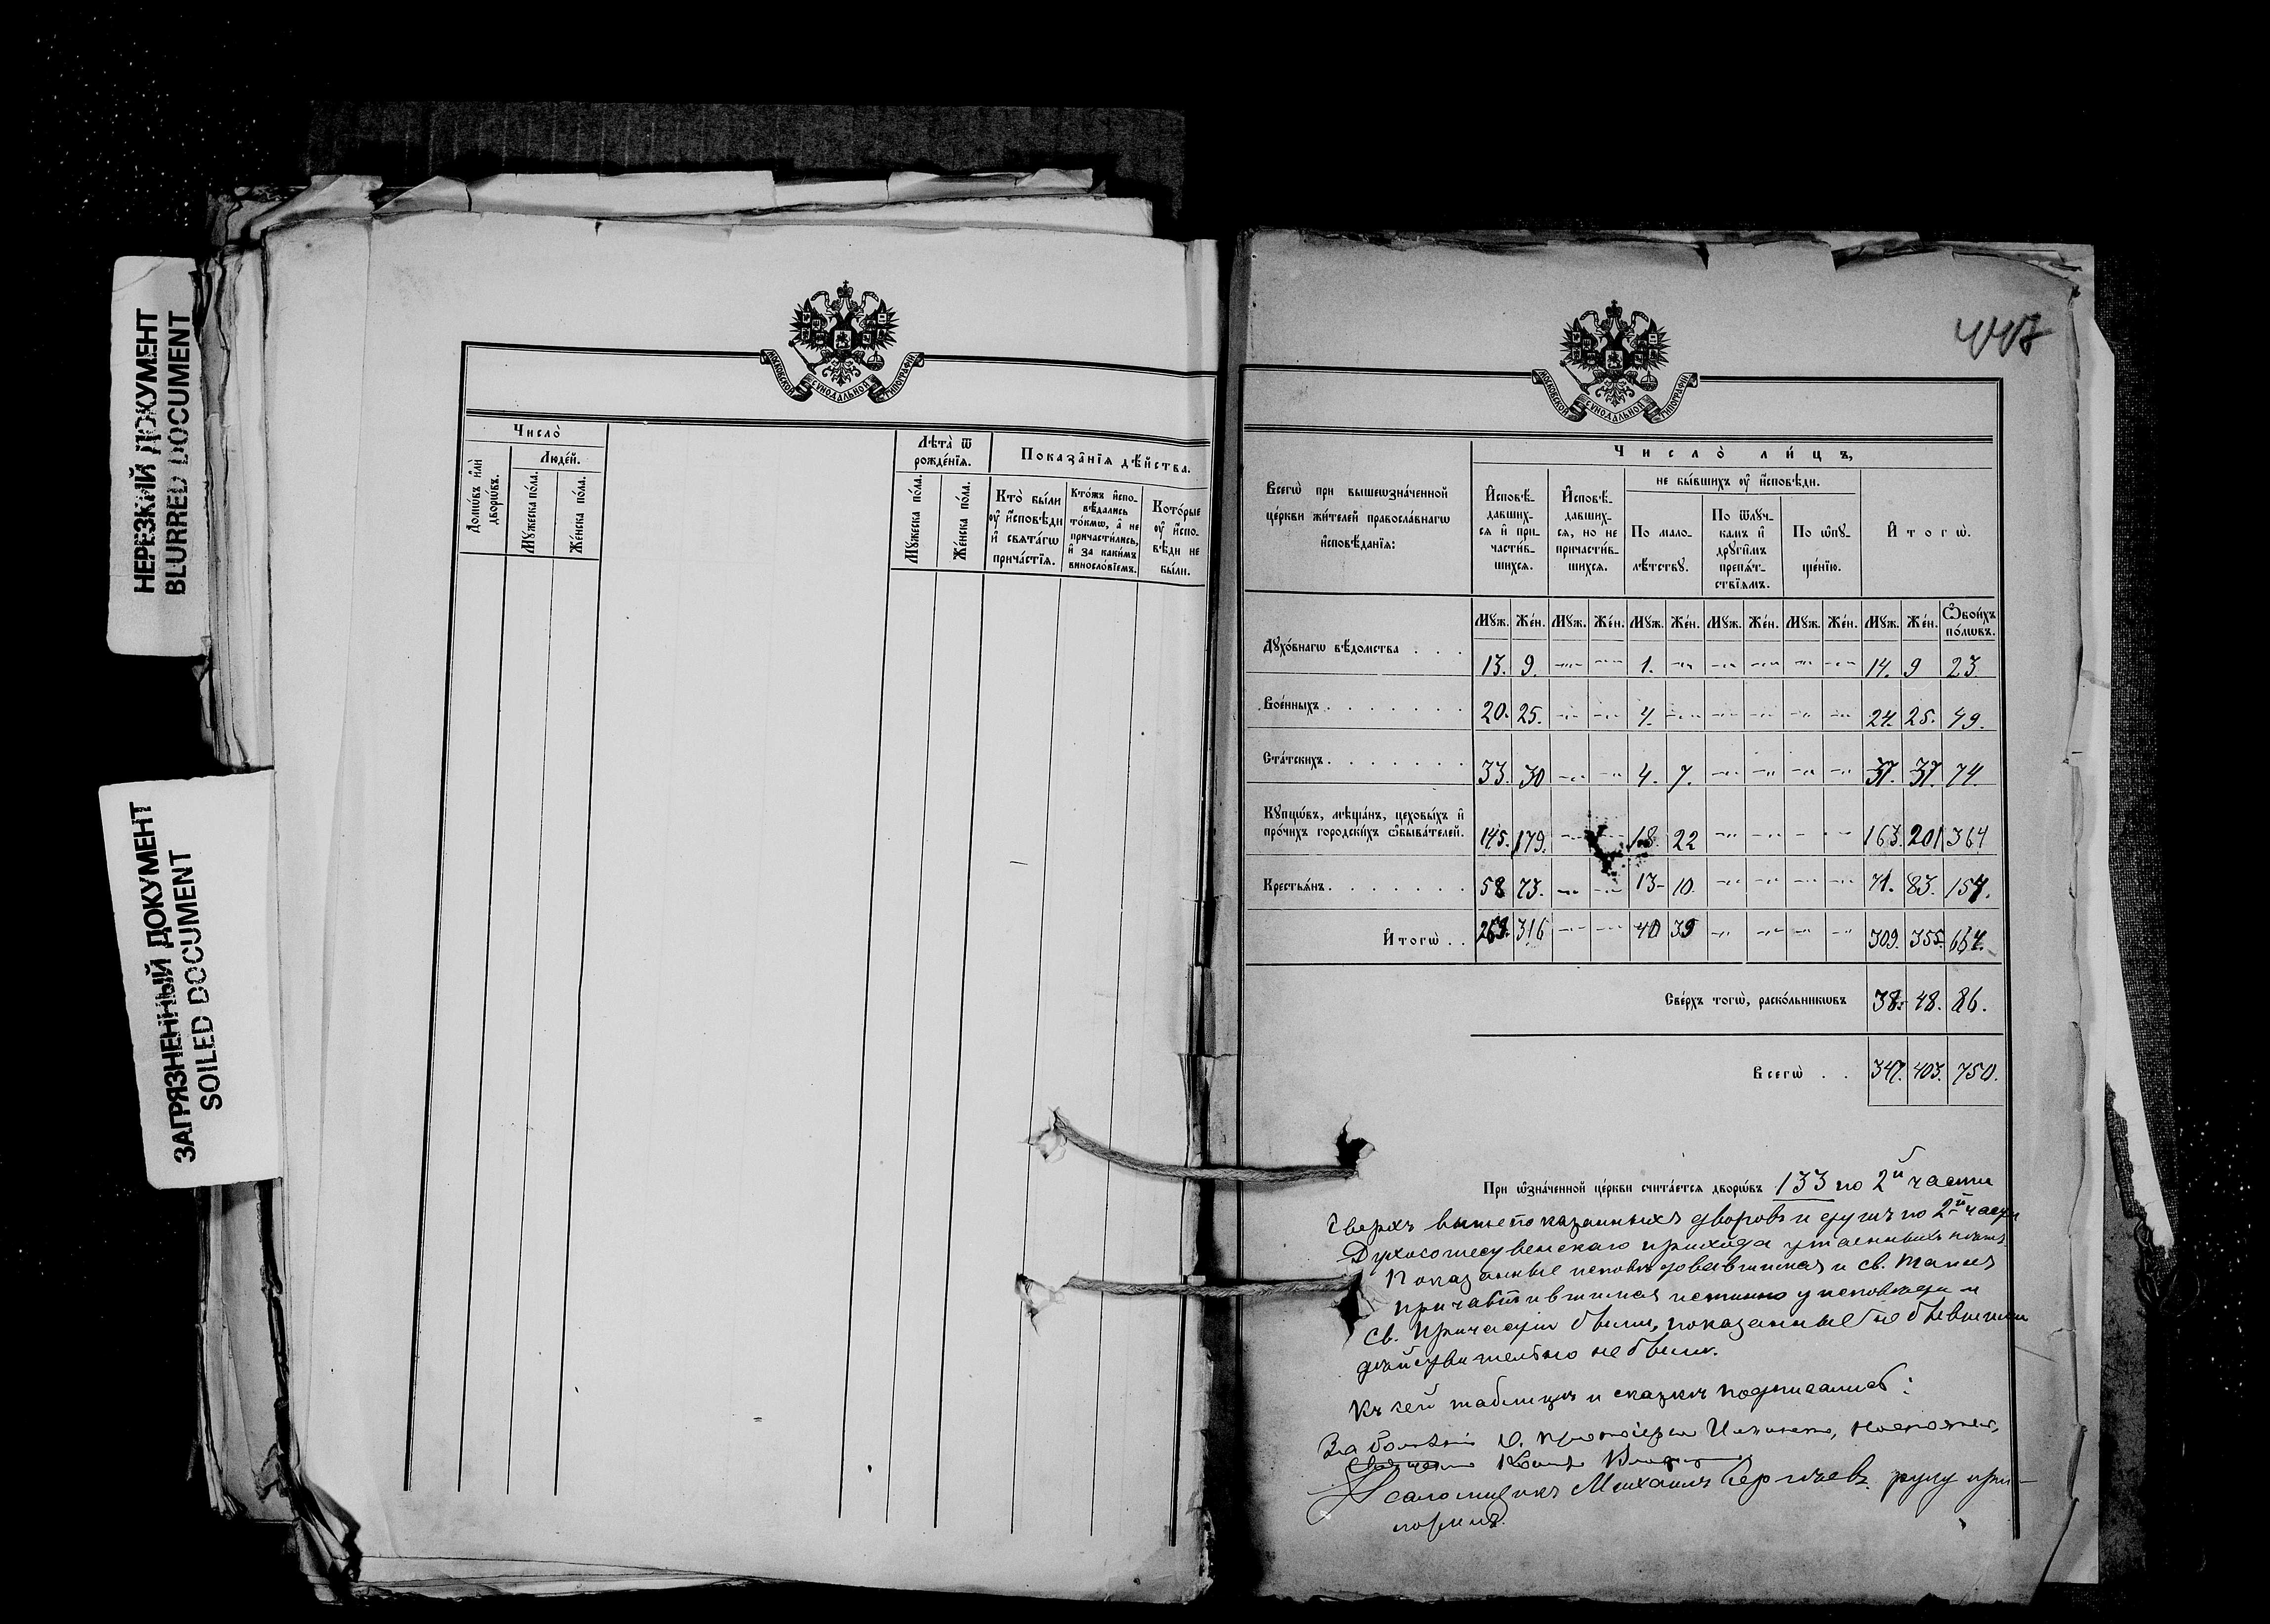 НЕРЕЗКИЙ ДОКУМЕНТ
BLURRED DOCUMENT
ЗАГРЯЗНЕННЫЙ ДОКУМЕНТ
SOILED DOCUMENT
МОСКОВСКОЙ СѴНОДАЛЬНОЙ ТИПОГРАФІИ
Число̀
Домѡ́въ и҆лѝ дворѡ́въ.
Люде́й.
Мꙋ́жеска по́ла.
Же́нска по́ла.
Лѣ́та ѿ рожде́нїѧ.
Мꙋ́жеска по́ла.
Же́нска по́ла.
Показа̑нїѧ дѣ́йства.
Кто̀ бы́ли оу҆ и҆сповѣди и҆ свѧта́гѡ прича́стїѧ.
Кто́жъ и҆спо-
вѣдались
то́кмѡ, а҆ не
причасти́лись,
и҆ за каки́мъ
винословїемъ.
Кото́рые
оу҆ и҆спо-
вѣди не
бы́ли.
МОСКОВСКОЙ СѴНОДАЛЬНОЙ ТИПОГРАФІИ
Всегѡ̀ при вышеѡзна́ченной
це́ркви жи́телей правосла́внагѡ
и҆сповѣданїѧ:
Число̀ ли́цъ,
И҆сповѣ-
давших-
сѧ и҆ при-
части́в-
шихсѧ.
И҆сповѣ-
давших-
сѧ, но не
причасти́в-
шихсѧ.
не бы́вшихъ оу҆ и҆сповѣди.
По мало-
лѣ́тствꙋ.
По ѿлꙋч-
камъ и҆
други̑мъ
препѧ́т-
ствїѧмъ.
По ѡ҆пꙋ-
ще́нїю.
И҆тогѡ̀.
Мꙋж. Же́н. Мꙋж. Же́н. Мꙋж. Же́н. Мꙋж. Же́н. Мꙋж. Же́н. Мꙋж. Же́н. Ѻ҆бои́хъ по́лѡвъ.
Дꙋхо́внагѡ вѣ́домства . . . 13. 9. 1. 14. 9 23.
Вое́нныхъ . . . . . . . 20. 25. 4. 24. 25. 49.
Ста́тскихъ . . . . . . . 33. 30 4. 7. 37. 37. 74.
Кꙋпцѡ́въ, мѣща́нъ, цеховы́хъ и҆
про́чихъ городски́хъ ѡ҆быва́телей. 145. 179. 18. 22 163. 201 364
Крестьѧ́нъ . . . . . . . 58 73. 13 10. 71. 83. 154.
И҆тогѡ̀ . . 269. 316 40 39 309. 355. 664.
Све́рхъ тогѡ̀, раско́льникѡвъ 38. 48. 86.
Всегѡ̀ . . 347. 403. 750.
При ѡ҆зна́ченной це́ркви счита́етсѧ дворѡ́въ 133 по 2й части
Сверхъ вышепоказанныхъ дворовъ и душъ по 2й части
Духосошественскаго прихода утаенныхъ нѣтъ.
Показанные исповѣдовавшимися и св. таинъ
причастившимися истинно у исповѣди и
св. причастія были, показанные не бывшими
дѣйствительно не были.
Къ сей таблицѣ и сказкѣ подписались:
За болѣзнію о. протоіерея
Псаломщикъ Михаилъ Сергѣевъ руку при-
ложилъ.